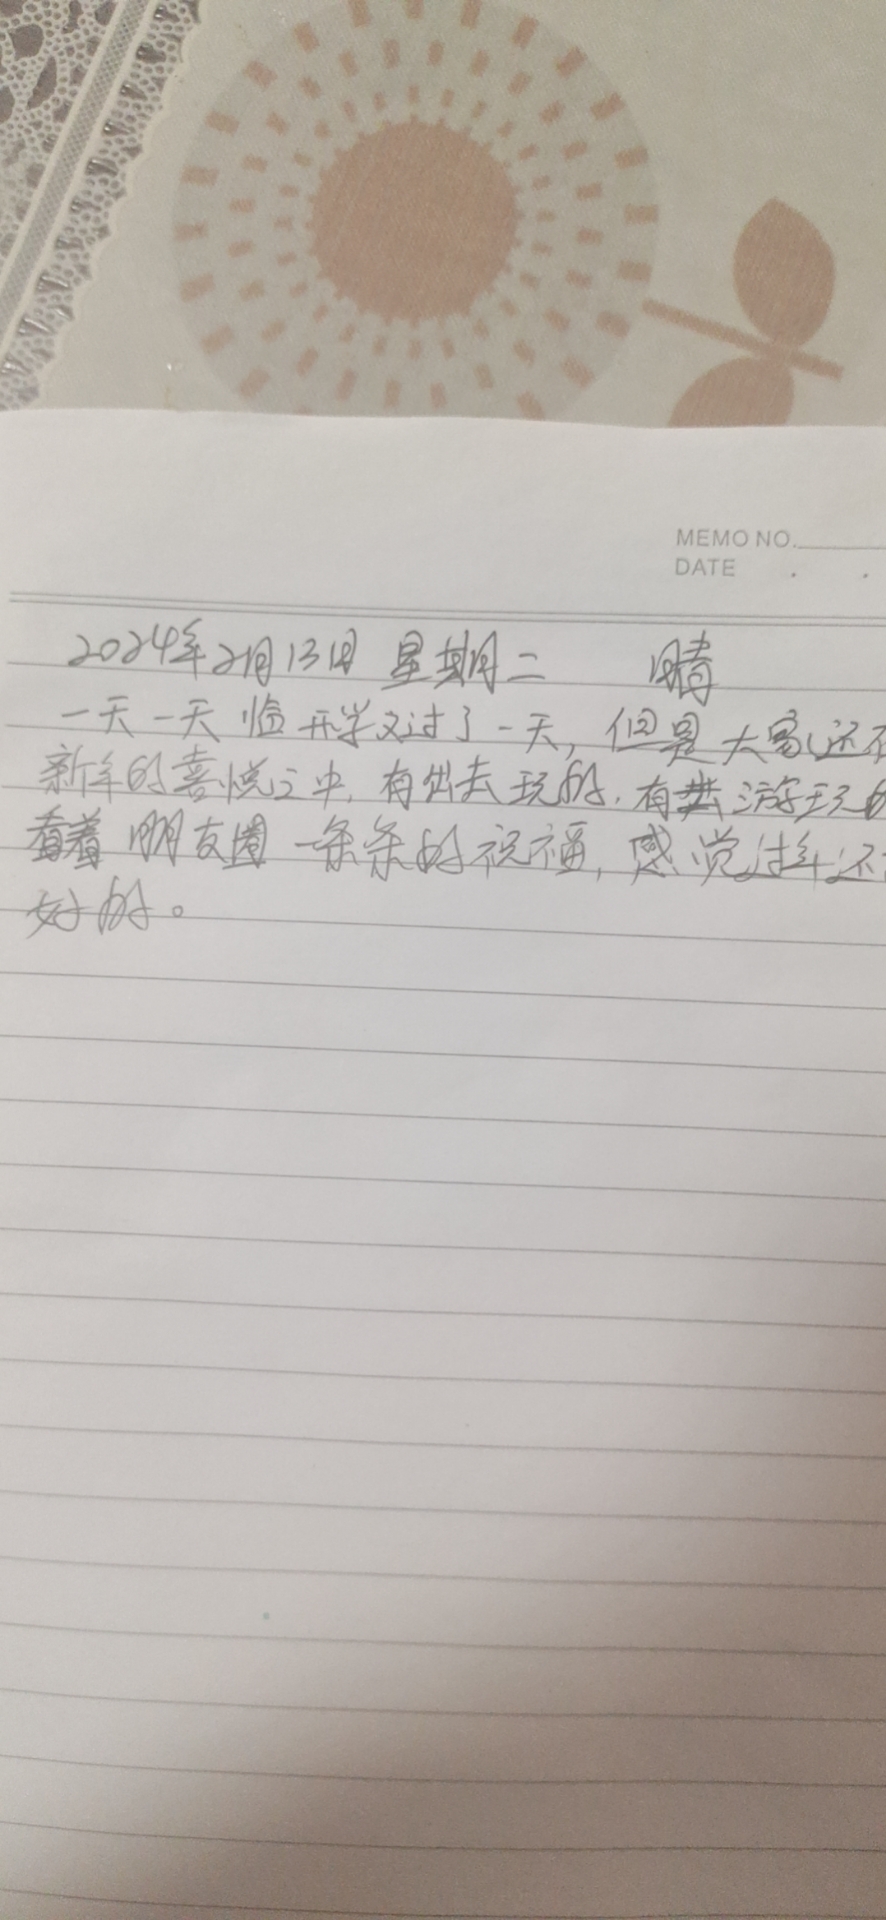 MEMO NO.
DATE . .
2024年2月13日 星期二 晴
一天一天临开学又过了一天,但是大家还在
新年的喜悦之中,有出去玩的,有去游玩的
看着朋友圈一条条的祝福,感觉过年还
好的。